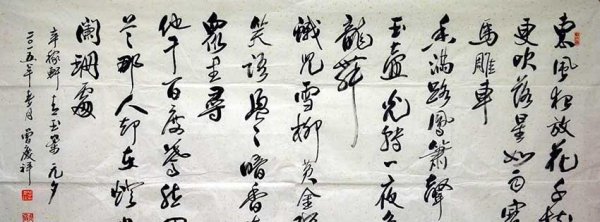 東風夜放花千樹
更吹落星如雨寶
馬雕車
香滿路鳳簫聲
玉壺光轉一夜
龍舞
蛾兒雪柳黃金縷
笑語盈〻暗香
衆里尋
他千百度驀然
首那人却在燈火
闌珊處
辛稼軒 青玉案 元夕
二〇一五年春月 曹慶祥